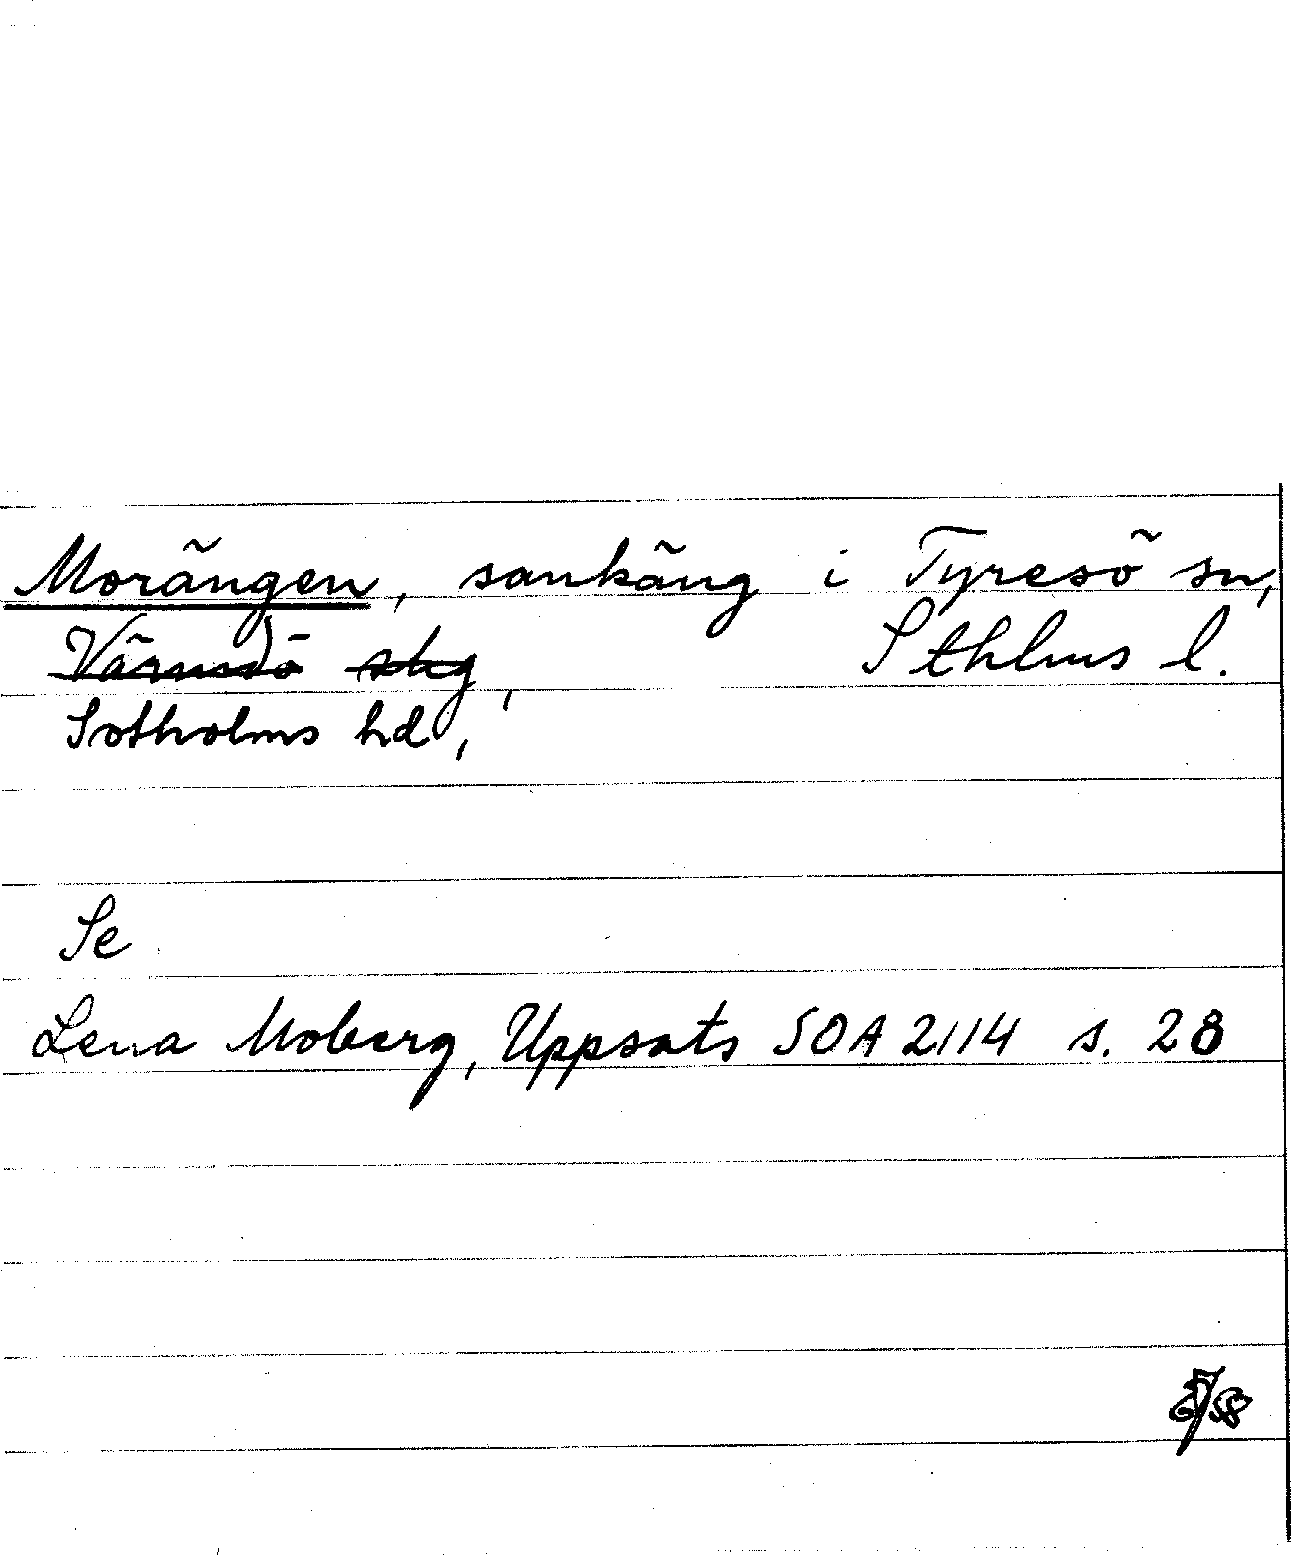 Morängen, sankäng i Tyresö sn,
Värmdö skg, Sthlms l.
Sotholms hd,
Se
Lena Moberg, Uppsats SOA 2114 s. 28